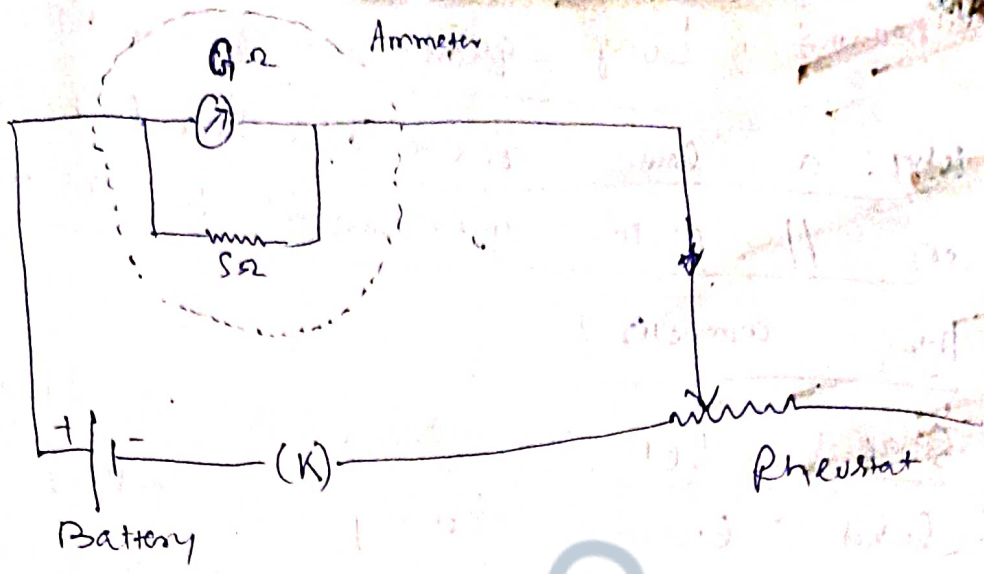 Ammeter
G Ω
SΩ
+ -
(K)
Rheustat
Battery